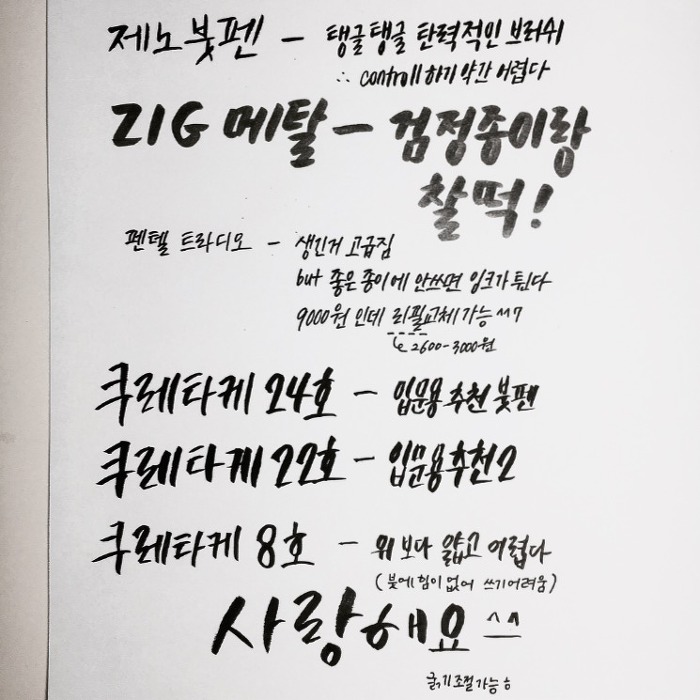 제노붓펜 - 탱글탱글 탄력적인 브러쉬
∴ controll하기 약간 어렵다
ZIG 메탈 - 검정종이랑
찰떡!
펜텔 트라디오 - 생긴거 고급짐
but 좋은 종이에 안쓰면 잉크가 튄다
9000원 인데 리필교체가능
2600-3000원
쿠레타케 24호 - 입문용 추천 붓펜
쿠레타케 22호 - 입문용추천2
쿠레타케 8호 - 위 보다 얇고 어렵다
(붓에 힘이 없어 쓰기어려움)
사랑해요 ^^
굵기조절가능ㅎ